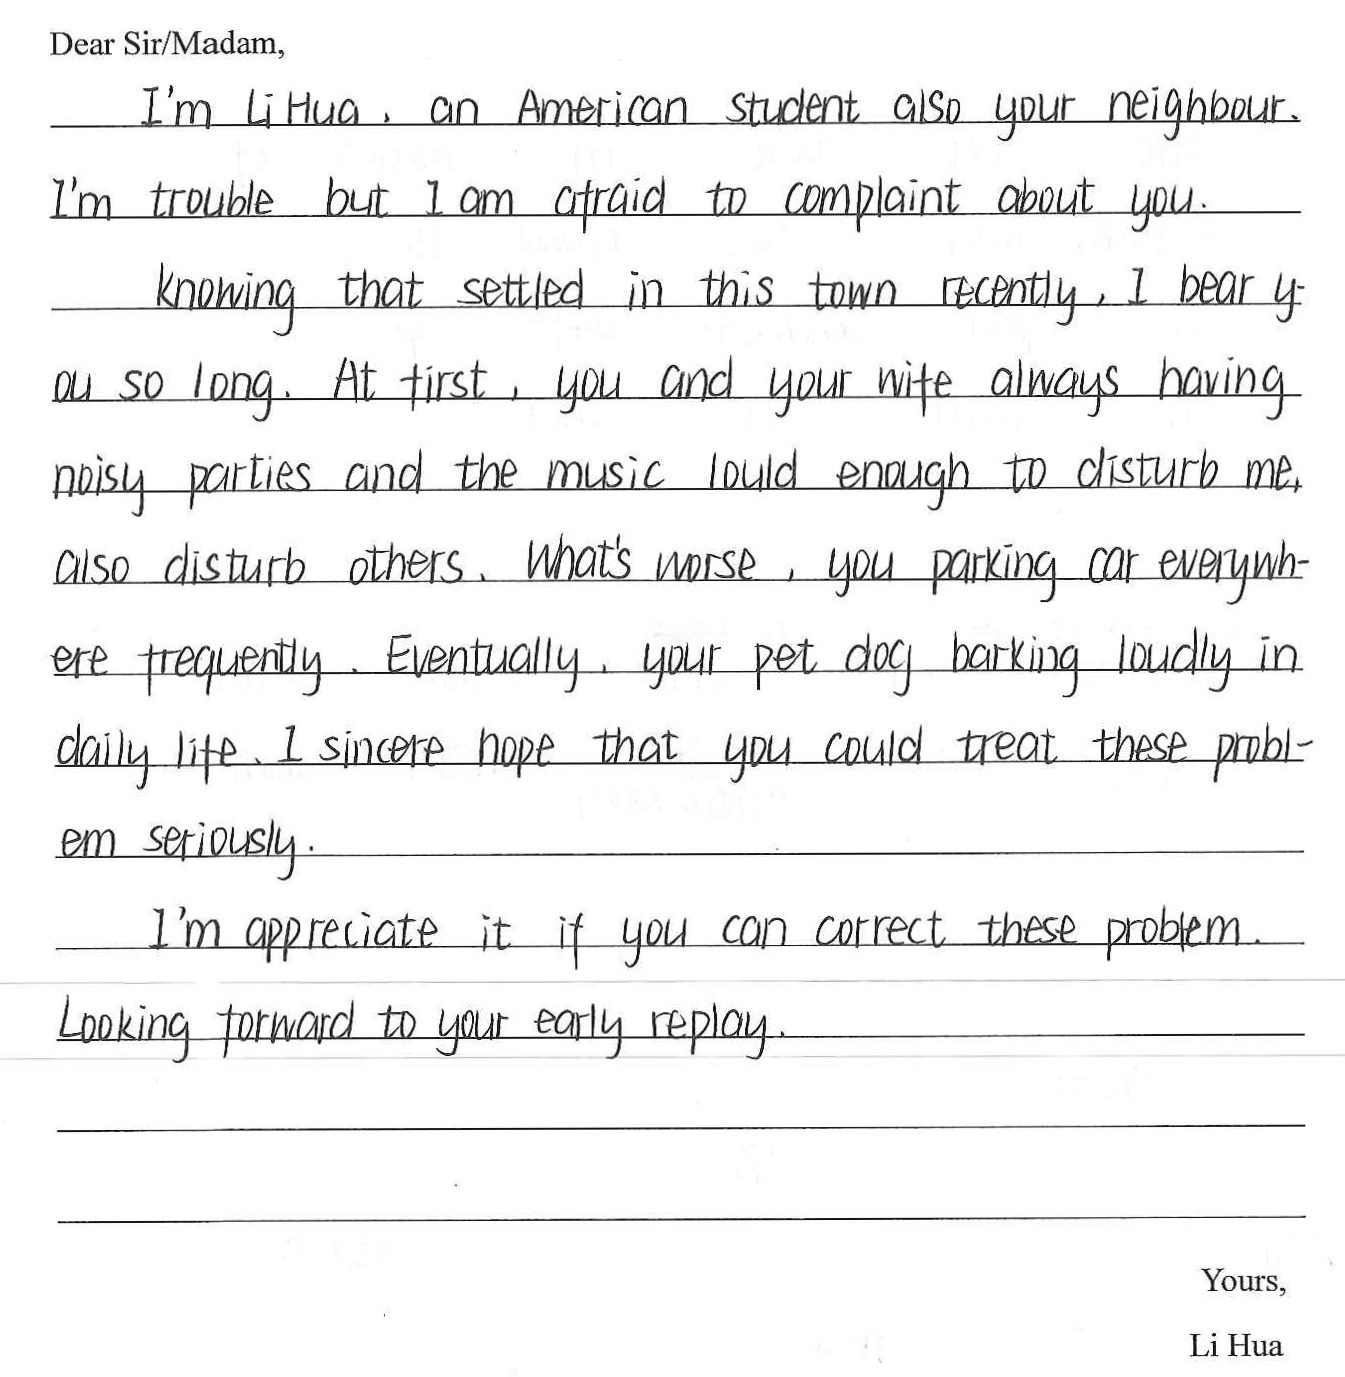 Dear Sir/Madam,
I'm Li Hua, an American student also your neighbour.
I'm trouble but I am afraid to complaint about you.
Knowing that settled in this town recently, I bear y-
ou so long. At first, you and your wife always having
noisy parties and the music lould enough to disturb me,
also disturb others. What's worse, you parking car everywh-
ere frequently. Eventually, your pet dog barking loudly in
daily life. I sincere hope that you could treat these probl-
em seriously.
I'm appreciate it if you can correct these problem.
Looking forward to your early replay.
Yours,
Li Hua